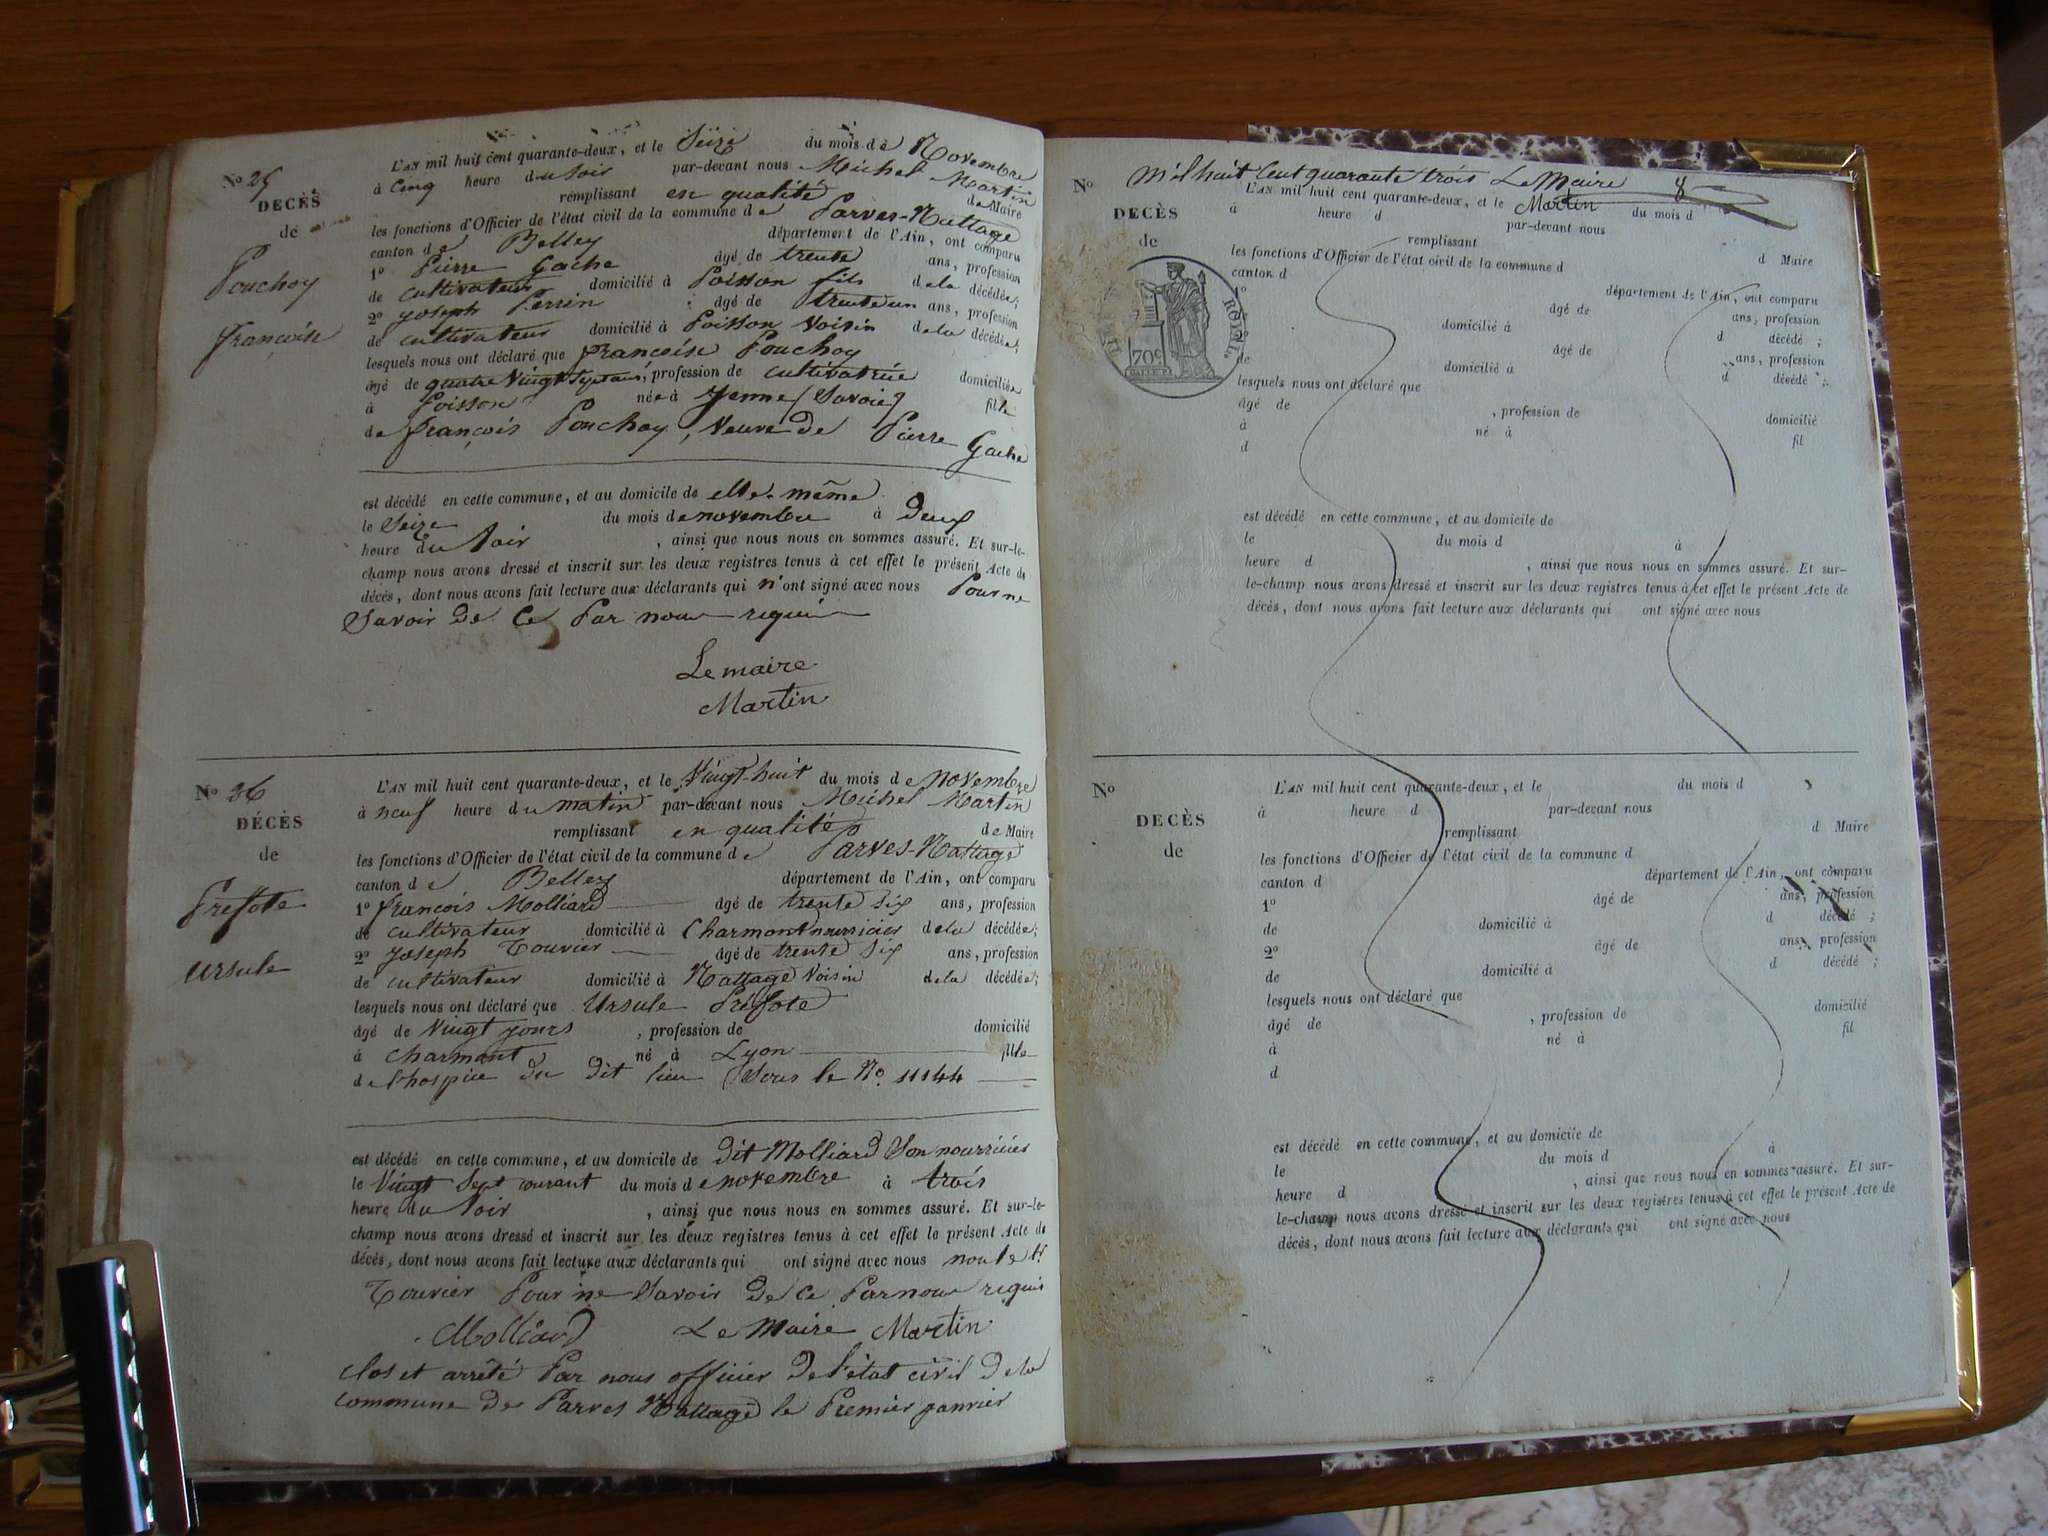 N° 25
DECÈS
de
Pouchoy
françoise
L'AN mil huit cent quarante-deux, et le Seize du mois de Novembre
à Cinq heure du Soir par-devant nous Michel Martin
remplissant en qualité de Maire
les fonctions d'Officier de l'état civil de la commune de Parves-Nattage
canton de Belley département de l'Ain, ont comparu
1° Pierre Gache âgé de trente ans, profession
de cultivateur domicilié à Poisson fils de la décédée;
2° Joseph Perrin âgé de trente un ans, profession
de cultivateur domicilié à Poisson Voisin de la décédée;
lesquels nous ont déclaré que françoise Pouchoy
âgé de quatre Vingt Sept ans, profession de cultivatrice domiciliée
à Poisson née à Yenne (Savoie) fille
de françois Pouchoy, Veuve de Pierre Gache
est décédé en cette commune, et au domicile de elle-même
le Seize du mois de novembre à Deux
heure du Soir , ainsi que nous nous en sommes assuré. Et sur-le-
champ nous avons dressé et inscrit sur les deux registres tenus à cet effet le présent Acte de
décès, dont nous avons fait lecture aux déclarants qui n'ont signé avec nous Pour ne
Savoir de Ce Par nous requis
Le maire
Martin
N° 26
DÉCÈS
de
Préfote
Ursule
L'AN mil huit cent quarante-deux, et le Vingt-huit du mois de Novembre
à neuf heure du matin par-devant nous Michel Martin
remplissant en qualité de Maire
les fonctions d'Officier de l'état civil de la commune de Parves-Nattage
canton de Belley département de l'Ain, ont comparu
1° françois Molliard âgé de trente six ans, profession
de cultivateur domicilié à Charmont nourricier de la décédée;
2° Joseph Touvier âgé de trente six ans, profession
de cultivateur domicilié à Nattage Voisin de la décédée;
lesquels nous ont déclaré que Ursule Préfote
âgé de Vingt jours , profession de domicilié
à Charmont né à Lyon fille
de l'hospice du dit lieu Sous le N° 11144
est décédé en cette commune, et au domicile de dit Molliard Son nourricier
le Vingt Sept courant du mois de novembre à trois
heure du Soir , ainsi que nous nous en sommes assuré. Et sur-le-
champ nous avons dressé et inscrit sur les deux registres tenus à cet effet le présent Acte de
décès, dont nous avons fait lecture aux déclarants qui ont signé avec nous
Touvier Pour ne Savoir de Ce Par nous requis
Molliard Le Maire Martin
Clos et arrêté Par nous officier de l'état civil de la
commune de Parves Nattage le Premier janvier
mil huit Cent quarante trois Le Maire
Martin
N°
DECÈS
de
L'AN mil huit cent quarante-deux, et le du mois d
à heure d par-devant nous
remplissant d Maire
les fonctions d'Officier de l'état civil de la commune d
canton d département de l'Ain, ont comparu
1° âgé de ans, profession
domicilié à d décédé ;
âgé de ans, profession
de domicilié à d décédé ;
lesquels nous ont déclaré que
âgé de , profession de domicilié
à né à fil
d
ROYAL.
70c
est décédé en cette commune, et au domicile de
le du mois d à
heure d , ainsi que nous nous en sommes assuré. Et sur-
le-champ nous avons dressé et inscrit sur les deux registres tenus à cet effet le présent Acte de
décès, dont nous avons fait lecture aux déclarants qui ont signé avec nous
N°
DECÈS
de
L'AN mil huit cent quarante-deux, et le du mois d
à heure d par-devant nous
remplissant d Maire
les fonctions d'Officier de l'état civil de la commune d
canton d département de l'Ain, ont comparu
1° âgé de ans, profession
de domicilié à d décédé ;
2° âgé de ans, profession
de domicilié à d décédé ;
lesquels nous ont déclaré que
âgé de , profession de domicilié
à né à fil
d
est décédé en cette commune, et au domicile de
le du mois d à
heure d , ainsi que nous nous en sommes assuré. Et sur-
le-champ nous avons dressé et inscrit sur les deux registres tenus à cet effet le présent Acte de
décès, dont nous avons fait lecture aux déclarants qui ont signé avec nous